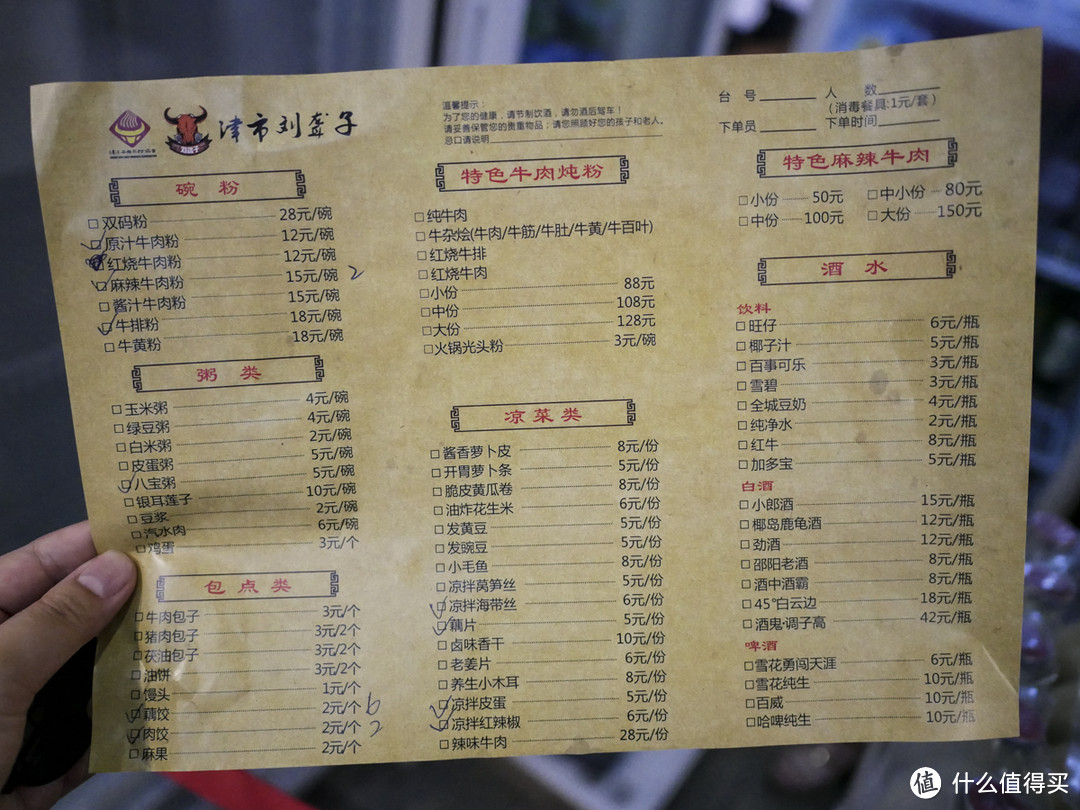 津市刘聋子
温馨提示:
为了您的健康,请节制饮酒,请勿酒后驾车!
请妥善保管您的贵重物品;请您照顾好您的孩子和老人。
忌口请说明
台 号 人 数
(消毒餐具:1元/套)
下单员 下单时间
碗 粉
双码粉 28元/碗
原汁牛肉粉 12元/碗
红烧牛肉粉 12元/碗
麻辣牛肉粉 15元/碗 2
酱汁牛肉粉 15元/碗
牛排粉 18元/碗
牛黄粉 18元/碗
粥 类
玉米粥 4元/碗
绿豆粥 4元/碗
白米粥 2元/碗
皮蛋粥 5元/碗
八宝粥 5元/碗
银耳莲子 10元/碗
豆浆 2元/碗
汽水肉 6元/碗
鸡蛋 3元/个
包 点 类
牛肉包子 3元/个
猪肉包子 3元/2个
茯油包子 3元/2个
油饼 3元/2个
馒头 1元/个
藕饺 2元/个 6
肉饺 2元/个 2
麻果 2元/个
特色牛肉炖粉
纯牛肉
牛杂烩(牛肉/牛筋/牛肚/牛黄/牛百叶)
红烧牛排
红烧牛肉
小份 88元
中份 108元
大份 128元
火锅光头粉 3元/碗
凉 菜 类
酱香萝卜皮 8元/份
开胃萝卜条 5元/份
脆皮黄瓜卷 8元/份
油炸花生米 6元/份
发黄豆 5元/份
发豌豆 5元/份
小毛鱼 8元/份
凉拌莴笋丝 5元/份
凉拌海带丝 6元/份
藕片 5元/份
卤味香干 10元/份
老姜片 6元/份
养生小木耳 8元/份
凉拌皮蛋 5元/份
凉拌红辣椒 6元/份
辣味牛肉 28元/份
特色麻辣牛肉
小份 50元 中小份 80元
中份 100元 大份 150元
酒 水
饮料
旺仔 6元/瓶
椰子汁 5元/瓶
百事可乐 3元/瓶
雪碧 3元/瓶
全城豆奶 4元/瓶
纯净水 2元/瓶
红牛 8元/瓶
加多宝 5元/瓶
白酒
小郎酒 15元/瓶
椰岛鹿龟酒 12元/瓶
劲酒 12元/瓶
邵阳老酒 8元/瓶
酒中酒霸 8元/瓶
45°白云边 18元/瓶
酒鬼·调子高 42元/瓶
啤酒
雪花勇闯天涯 6元/瓶
雪花纯生 10元/瓶
百威 10元/瓶
哈啤纯生 10元/瓶
值 什么值得买